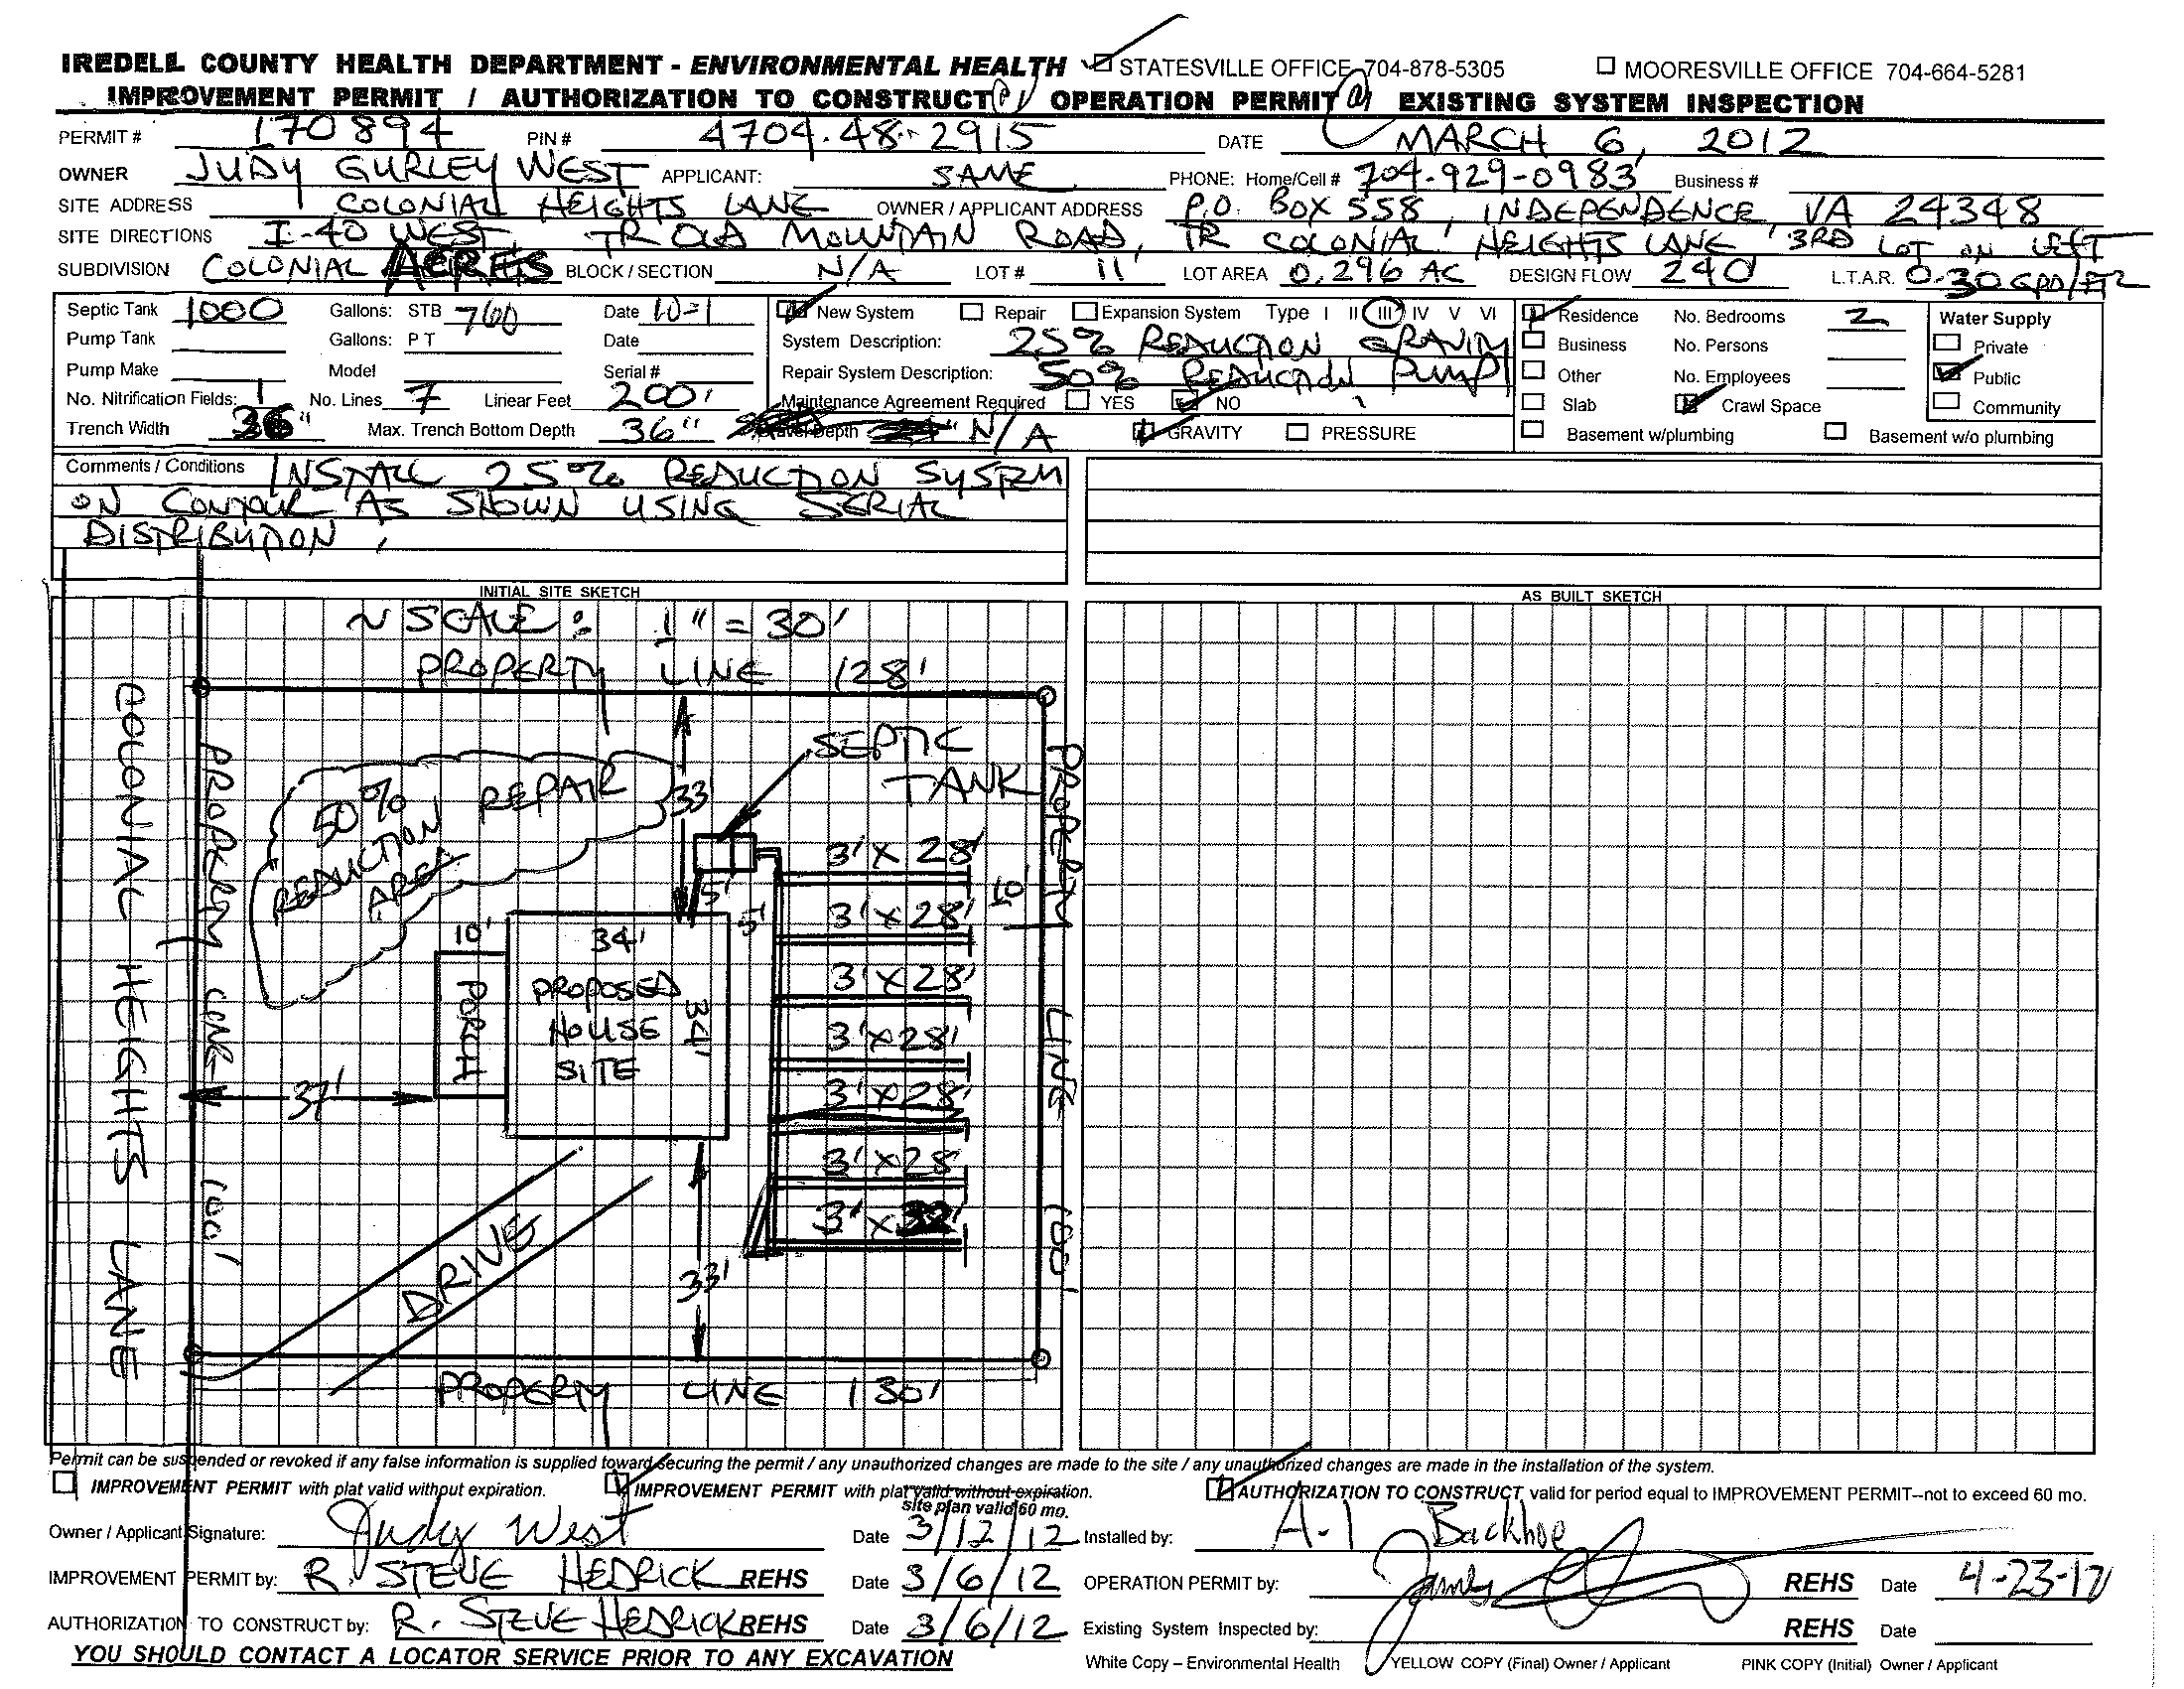 IREDELL COUNTY HEALTH DEPARTMENT - ENVIRONMENTAL HEALTH STATESVILLE OFFICE 704-878-5305 MOORESVILLE OFFICE 704-664-5281
IMPROVEMENT PERMIT / AUTHORIZATION TO CONSTRUCT / OPERATION PERMIT / EXISTING SYSTEM INSPECTION
PERMIT # 170894 PIN # 4704.48-2915 DATE MARCH 6, 2012
OWNER JUDY GURLEY WEST APPLICANT: SAME PHONE: Home/Cell # 704-929-0983 Business #
SITE ADDRESS COLONIAL HEIGHTS LANE OWNER / APPLICANT ADDRESS P.O. BOX 558, INDEPENDENCE, VA 24348
SITE DIRECTIONS I-40 WEST, TR OLD MOUNTAIN ROAD, TR COLONIAL HEIGHTS LANE 3RD LOT ON LEFT
SUBDIVISION COLONIAL ACRES BLOCK / SECTION N/A LOT # 11 LOT AREA 0.296 AC DESIGN FLOW 240 L.T.A.R. 0.30 GPD/FT2
Septic Tank 1000 Gallons: STB 760 Date 10-1 New System Repair Expansion System Type I II III IV V VI Residence No. Bedrooms 2 Water Supply
Pump Tank Gallons: P T Date System Description: 25% REDUCTION GRAVITY Business No. Persons Private
Pump Make Model Serial # Repair System Description: 50% REDUCTION PUMP Other No. Employees Public
No. Nitrification Fields: 1 No. Lines 7 Linear Feet 200' Maintenance Agreement Required YES NO Slab Crawl Space Community
Trench Width 36" Max. Trench Bottom Depth 36" Gravel Depth N/A GRAVITY PRESSURE Basement w/plumbing Basement w/o plumbing
Comments / Conditions INSTALL 25% REDUCTION SYSTEM
ON CONTOUR AS SHOWN USING SERIAL
DISTRIBUTION.
INITIAL SITE SKETCH AS BUILT SKETCH
~ SCALE: 1" = 30'
PROPERTY LINE 128'
COLONIAL HEIGHTS LANE
PROPERTY LINE 100'
50% REDUCTION REPAIR AREA
33'
SEPTIC TANK
PROPERTY LINE 100'
5'
5'
10'
3' X 28'
3' X 28'
3' X 28'
3' X 28'
3' X 28'
3' X 28'
3' X 32'
10'
PORCH
34'
34'
PROPOSED
HOUSE
SITE
37'
DRIVE
33'
PROPERTY LINE 130'
Permit can be suspended or revoked if any false information is supplied toward securing the permit / any unauthorized changes are made to the site / any unauthorized changes are made in the installation of the system.
IMPROVEMENT PERMIT with plat valid without expiration. IMPROVEMENT PERMIT with plat valid without expiration. AUTHORIZATION TO CONSTRUCT valid for period equal to IMPROVEMENT PERMIT--not to exceed 60 mo.
site plan valid 60 mo.
Owner / Applicant Signature: Judy West Date 3/12/12 Installed by: A-1 Backhoe
IMPROVEMENT PERMIT by: R. STEVE HEDRICK REHS Date 3/6/12 OPERATION PERMIT by: REHS Date 4-23-12
AUTHORIZATION TO CONSTRUCT by: R. STEVE HEDRICK REHS Date 3/6/12 Existing System Inspected by: REHS Date
YOU SHOULD CONTACT A LOCATOR SERVICE PRIOR TO ANY EXCAVATION White Copy – Environmental Health YELLOW COPY (Final) Owner / Applicant PINK COPY (Initial) Owner / Applicant